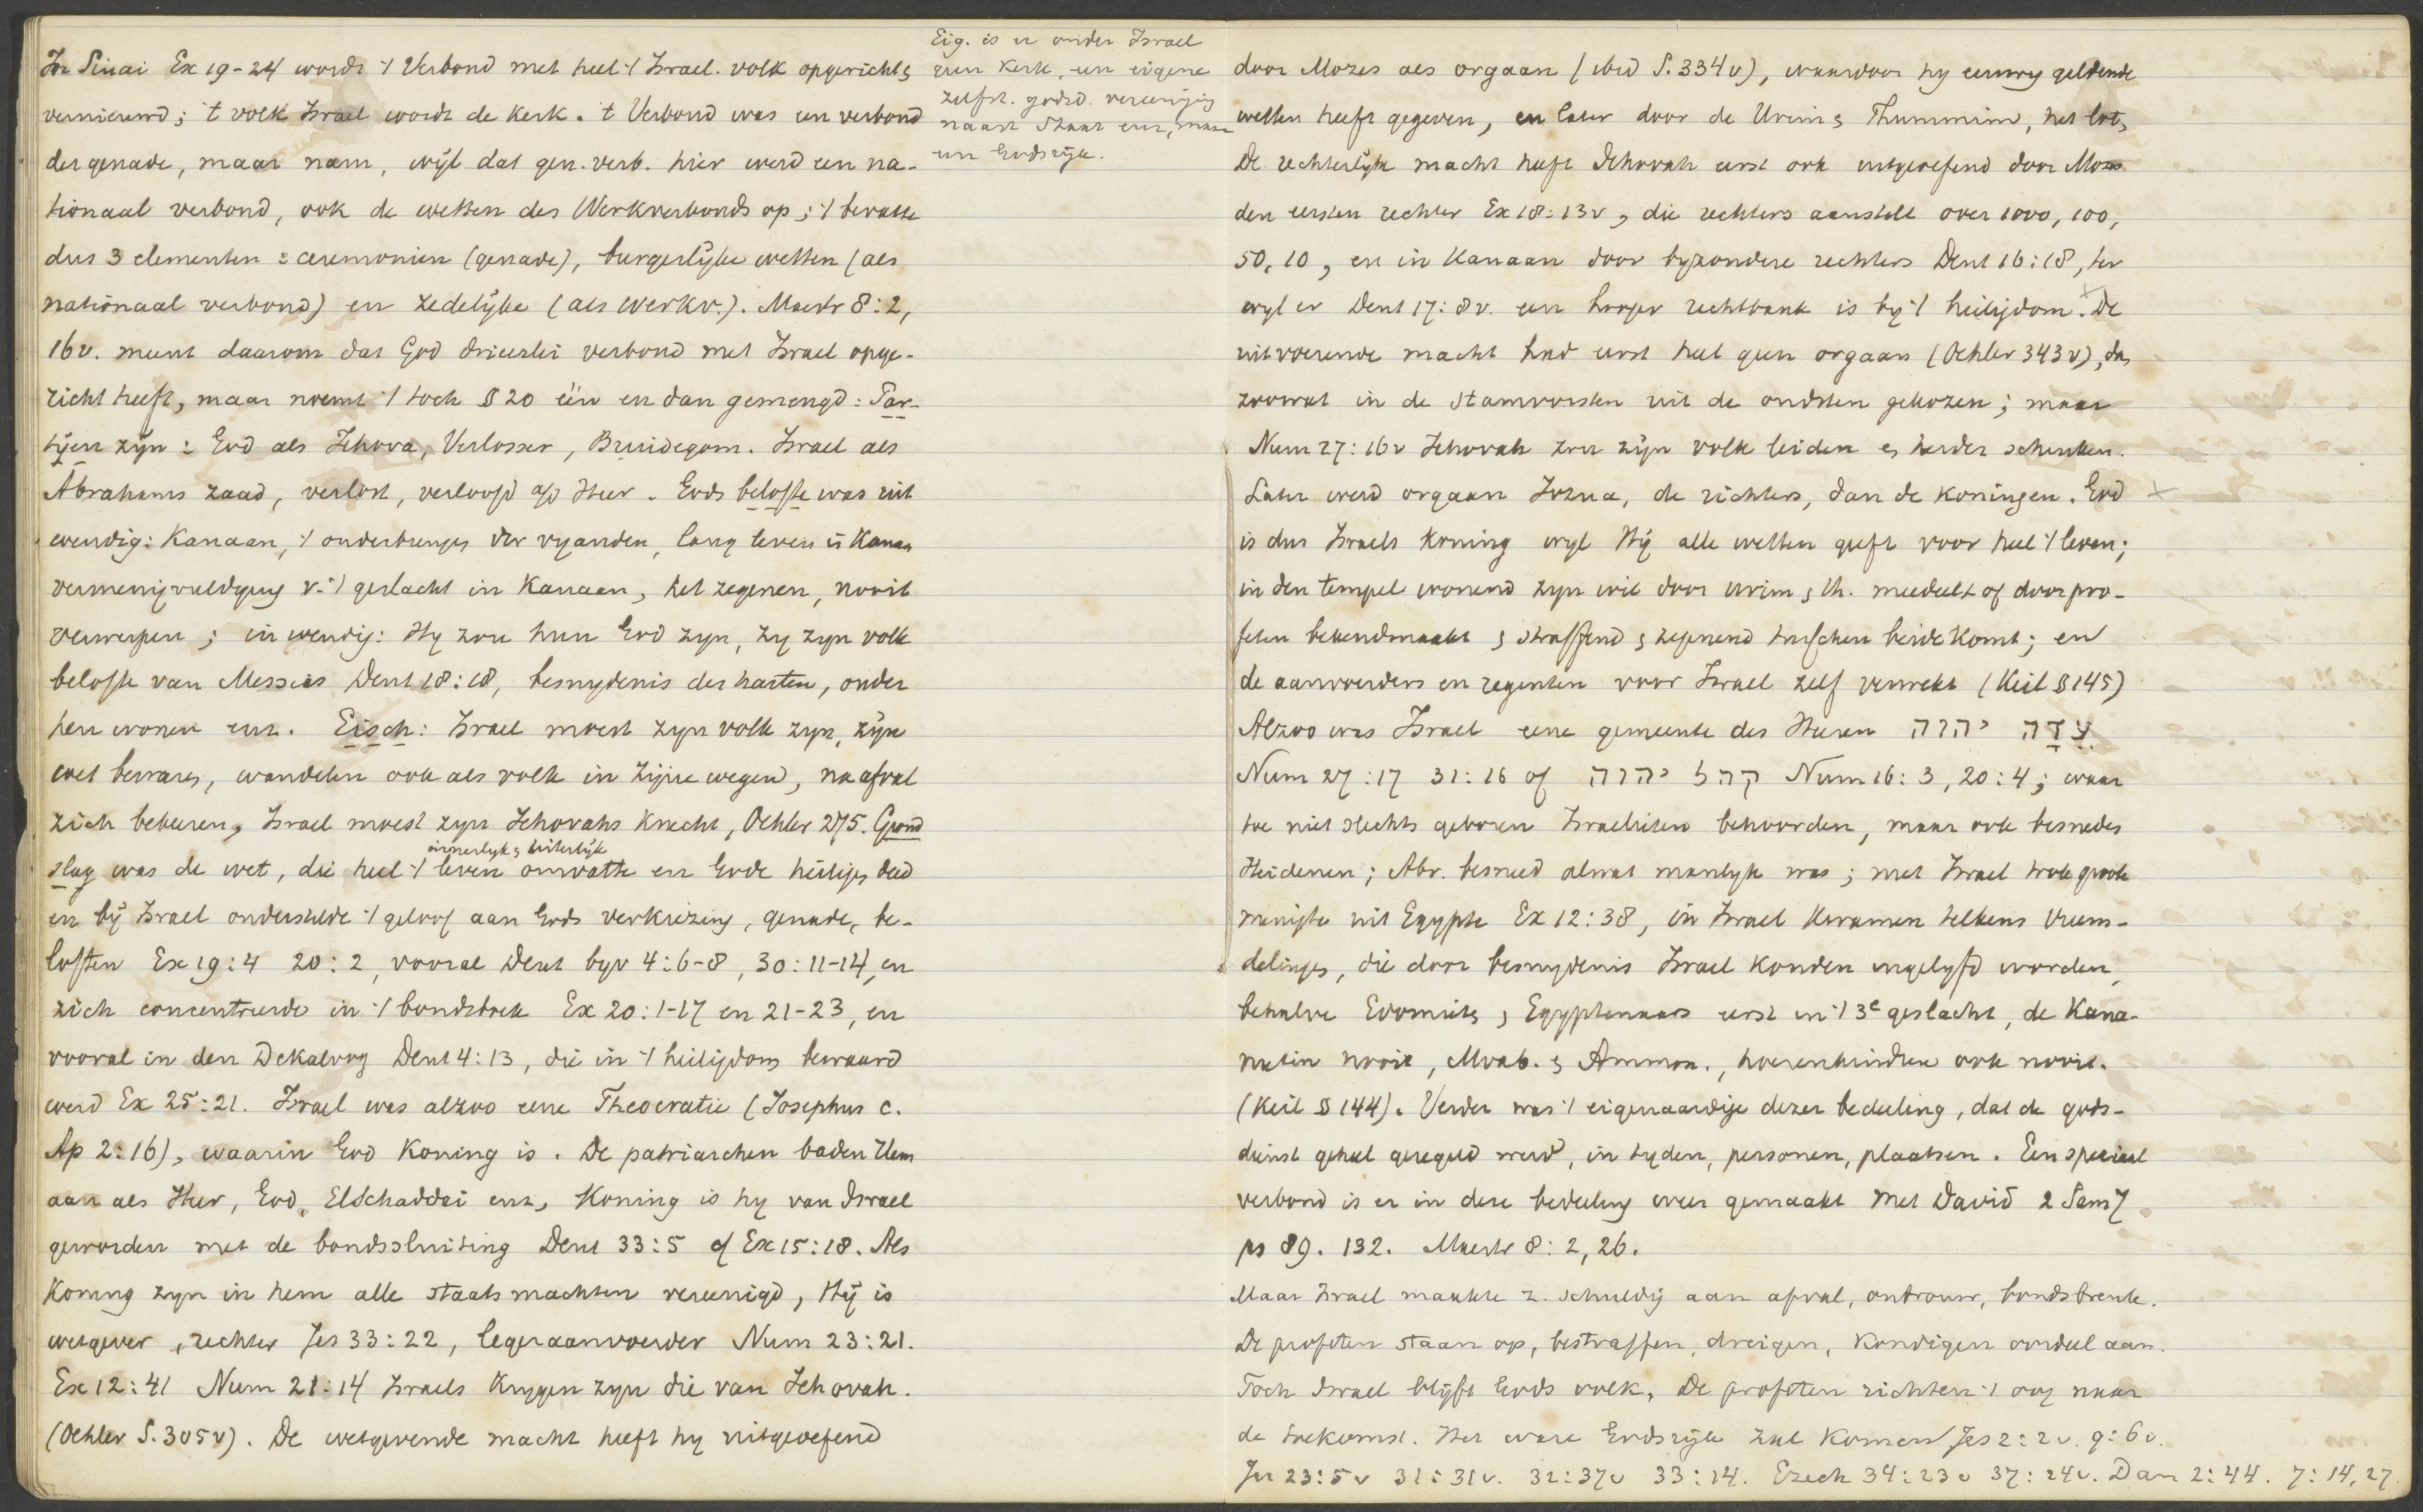 In Sinai Ex 19-24 wordt 't Verbond met heel 't Israel. volk opgericht &
vernieuwd; 't volk Israel wordt de Kerk. 't Verbond was een verbond
der genade, maar nam, wijl dat gen. verb. hier werd een na-
tionaal verbond, ook de wetten des Werkverbonds op; 't bevatte
dus 3 elementen: ceremonien (genade), burgerlijke wetten (als
nationaal verbond) en zedelijke (als Werkv.). Mastr 8:2,
16v. meent daarom dat God drieerlei verbond met Israel opge-
richt heeft, maar noemt 't toch § 20 één en dan gemengd: Par-
tijen zijn: God als Jehova, Verlosser, Bruidegom. Israel als
Abrahams zaad, verlost, verloofd a/d Heer. Gods belofte was uit
wendig: Kanaan, 't onderbrengen der vyanden, lang leven in Kanaan
vermenigvuldiging v. 't geslacht in Kanaan, het zegenen, nooit
verwerpen; inwendig: Hy zou hun God zyn, zy zyn volk
belofte van Messias Deut 18:18, besnydenis des harten, onder
hen wonen enz. Eisch: Israel moest zyn volk zyn, zijn
wet bewaren, wandelen ook als volk in zijne wegen, na afval
zich bekeeren, Israel moest zyn Jehovahs Knecht, Oehler 275. Grond
innerlyk & uiterlijk
slag was de wet, die heel 't leven omvatte en Gode heiligen deed
en bij Israel onderstelde 't geloof aan Gods verkiezing, genade, be-
loften Ex 19:4 20:2, vooral Deut byv 4:6-8, 30:11-14, en
zich concentreerde in 't bondsboek Ex 20:1-17 en 21-23, en
vooral in den Dekaloog Deut 4:13, die in 't heiligdom bewaard
werd Ex 25:21. Israel was alzoo eene Theocratie (Josephus c.
Ap 2:16), waarin God Koning is. De patriarchen baden Hem
aan als Heer, God, ElSchaddai enz, Koning is hy van Israel
geworden met de bondssluiting Deut 33:5 cf Ex 15:18. Als
Koning zyn in hem alle staatsmachten vereenigd, Hij is
wetgever, rechter Jes 33:22, legeraanvoerder Num 23:21.
Ex 12:41 Num 21:14 Israels Krygen zyn die van Jehovah.
(Oehler S. 305v). De wetgevende macht heeft hy uitgeoefend
Eig. is er onder Israel
een Kerk, een eigene
zelfst. godsd. vereeniging
naast Staat enz, maar
een Godsrijk.
door Mozes als orgaan (ibid S. 334v), waardoor hy eeuwig geldende
wetten heeft gegeven, en later door de Urim & Thummim, het lot,
De rechterlijke macht heeft Jehovah eerst ook uitgeoefend door Mozes
den eersten rechter Ex 18:13v, die rechters aanstelt over 1000, 100,
50, 10, en in Kanaan door byzondere rechters Deut 16:18, ter
wyl er Deut 17:8v. een hooger rechtbank is by 't heiligdom. x De
uitvoerende macht had eerst heel geen orgaan (Oehler 343v), dan
zoowat in de Stamvorsten uit de oudsten gekozen; maar
Num 27:16v Jehovah zou zijn volk leiden & herder schenken.
Later werd orgaan Jozua, de richters, dan de Koningen. God x
is dus Israels Koning wyl Hij alle wetten geeft voor heel 't leven;
in den tempel wonend zyn wil door Urim & Th. meedeelt of door pro-
feten bekendmaakt & straffend & zegenend tusschen beide Komt; en
de aanvoerders en regenten voor Israel zelf verwekt (Keil § 145)
Alzoo was Israel eene gemeente des Heeren עֲדַת יהוה
Num 27:17 31:16 of קהל יהוה Num 16:3, 20:4; waar
toe niet slechts geboren Israelieten behoorden, maar ook besneden
Heidenen; Abr. besneed alwat manlyk was; met Israel trok groote
menigte uit Egypte Ex 12:38, in Israel Kwamen telkens vreem-
delingen, die door besnydenis Israel Konden ingelyfd worden,
behalve Edomiet & Egyptenaars eerst in 't 3e geslacht, de Kana-
nietin nooit, Moab. & Ammon., hoerenkinderen ook nooit.
(Keil § 144). Verder was 't eigenaardige dezer bedeeling, dat de gods-
dienst geheel geregeld werd, in tyden, personen, plaatsen. Een speciaal
verbond is er in deze bedeeling weer gemaakt met David 2 Sam 7
ps 89. 132. Mastr 8:2, 26.
Maar Israel maakte z. schuldig aan afval, ontrouw, bondsbreuk.
De profeten staan op, bestraffen, dreigen, Kondigen oordeel aan.
Toch Israel blijft Gods volk, De profeten richten 't oog naar
de toekomst. Het ware Godsrijk zal Komen Jes 2:2v. 9:6v.
Jer 23:5v 31:31v. 32:37v 33:14. Ezech 34:23v 37:24v. Dan 2:44. 7:14,27.